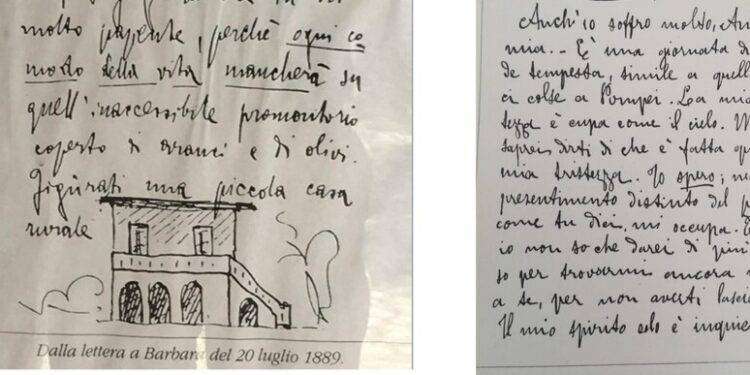 molto paziente, perchè ogni co
modo della vita mancherà su
quell'inaccessibile promontorio
coperto di aranci e di olivi.
Figùrati una piccola casa
rurale
Dalla lettera a Barbara del 20 luglio 1889.
Anch'io soffro molto,
mia. - È una giornata di
de tempesta, simile a quell
ci colse a Pompei. La mia
tezza è cupa come il cielo. M
saprei dirti di che è fatta qu
mia tristezza. Io spero; ne
presentimento distinto del p
come tu dici, mi occupa. E
io non so che darei di più
so per trovarmi ancora
a te, per non averti lascia
Il mio spirito solo è inquie